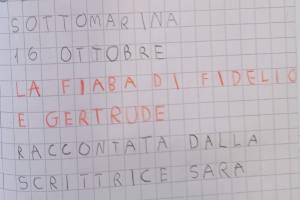 SOTTOMARINA
16 OTTOBRE
LA FIABA DI FIDELIO
E GERTRUDE
RACCONTATA DALLA
SCRITTRICE SARA